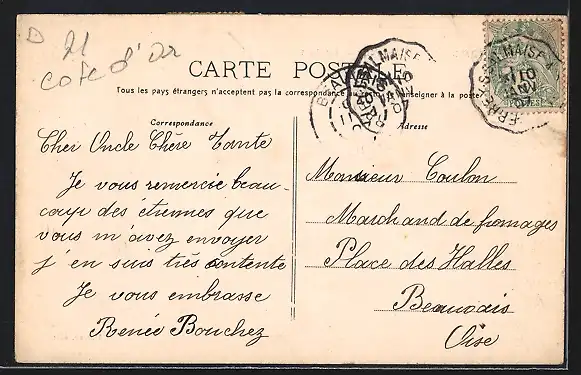 21
Cote d'Or
CARTE POSTALE
Tous les pays étrangers n'acceptent pas la correspondance au renseigner à la poste
Correspondance
Cher Oncle Chère Tante
Je vous remercie beau-
coup des étiennes que
vous m'avez envoyer
j'en suis très contente
Je vous embrasse
Renée Bouchez
Adresse
Monsieur Coulon
Marchand de fromages
Place des Halles
Beauvais
Oise
10
JANV